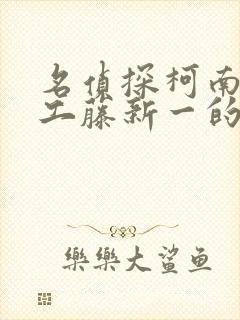 名偵探柯南
工藤新一的
樂樂大鯊鱼